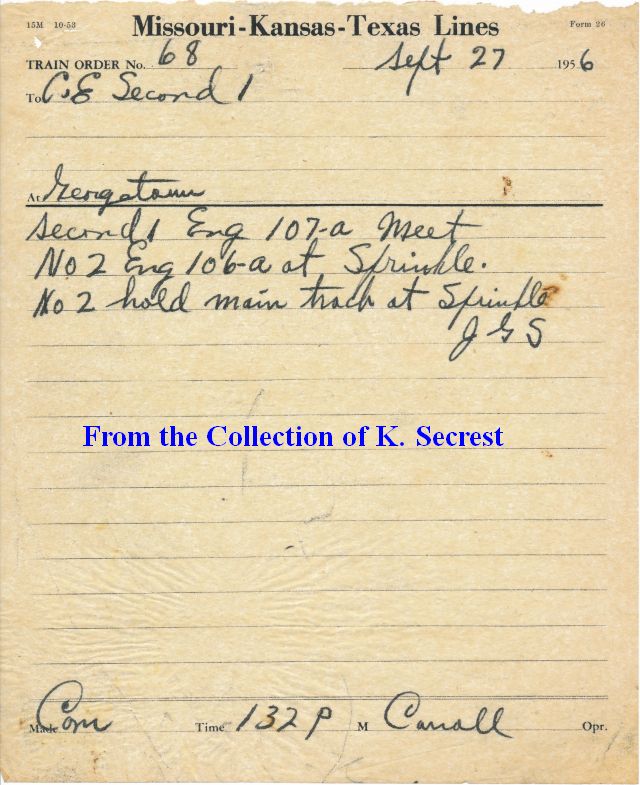 15M 10-53 Missouri-Kansas-Texas Lines Form 26
TRAIN ORDER No. 68 Sept 27 1956
To C.&E Second 1
At Georgetown
Second 1 Eng 107-a Meet
No 2 Eng 106-a at Sprinkle.
No 2 hold main track at Sprinkle
J G S
From the Collection of K. Secrest
Made Com Time 132 P M Carroll Opr.